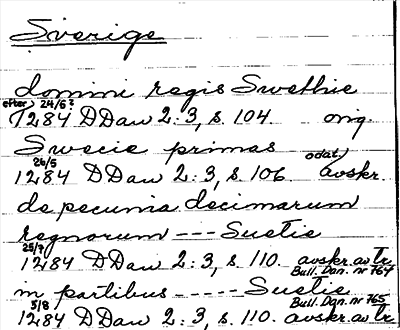 Sverige
domini regis Swethie
efter 24/6?
1284 DDan 2:3, s. 104. orig.
Swecie primas
26/5 odat.
1284 DDan 2:3, s. 106 avskr.
de pecunia decimarum
regnorum --- Suetie
25/7
1284 DDan 2:3, s. 110. avskr. av Tr.
Bull. Dan. nr 764
in partibus ----- Suetie
5/8 Bull. Dan. nr 765
1284 DDan 2:3, s. 110. avskr. av Tr.